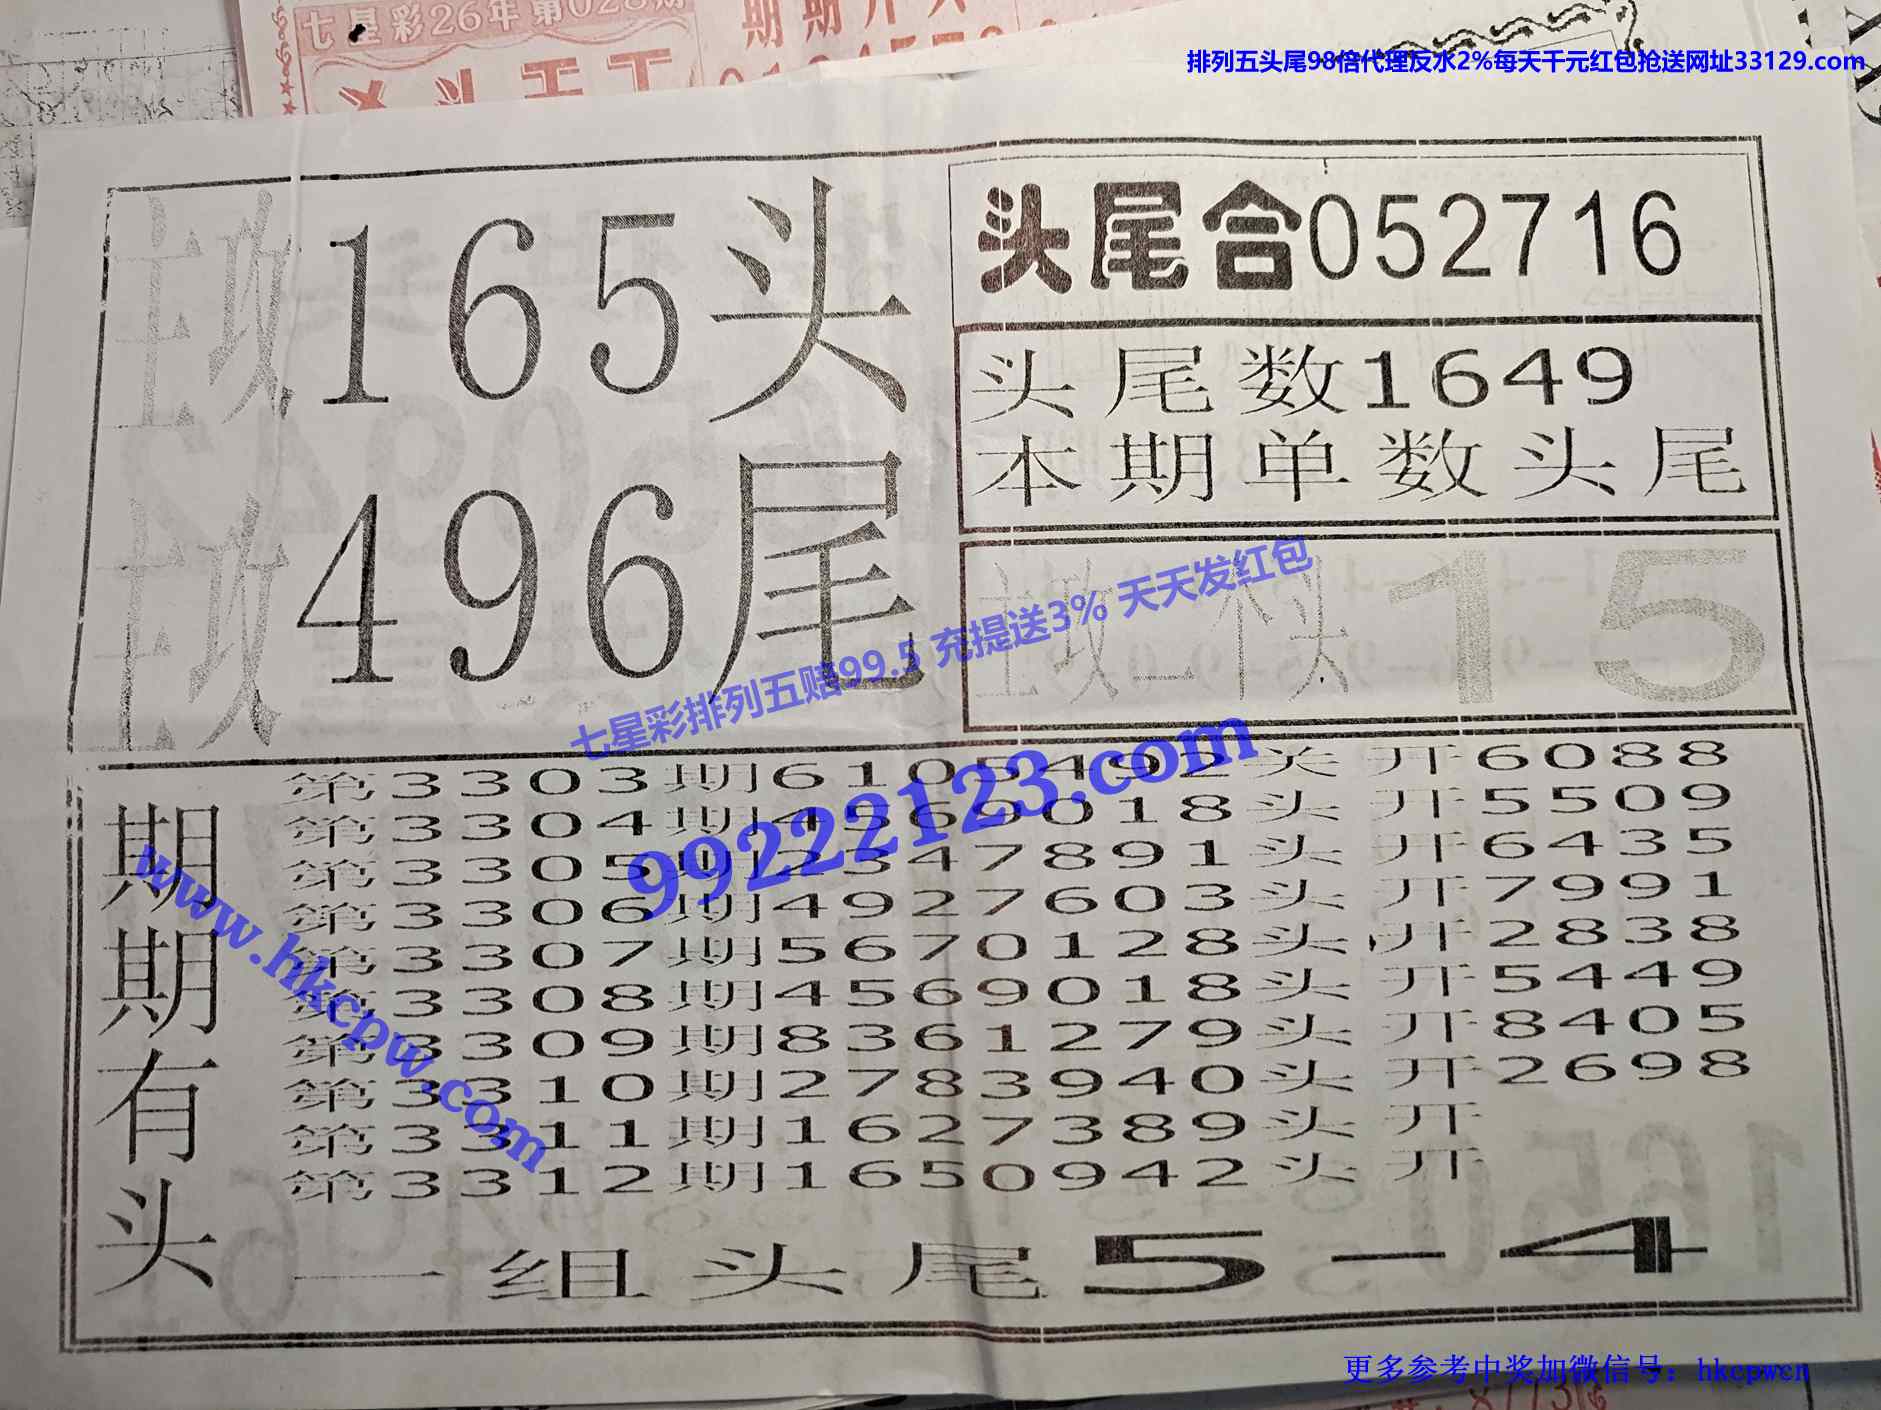 七星彩26年第028期
排列五头尾98倍代理反水2%每天千元红包抢送网址33129.com
主攻165头
主攻496尾
头尾合052716
头尾数1649
本期单数头尾
主攻一个头15
七星彩排列五赔99.5 充提送3% 天天发红包
99222123.com
www.hkcpw.com
期期有头
第3303期6105492头 开6088
第3304期4569018头 开5509
第3305期2347891头 开6435
第3306期4927603头 开7991
第3307期5670128头 开2838
第3308期4569018头 开5449
第3309期8361279头 开8405
第3310期2783940头 开2698
第3311期1627389头 开
第3312期1650942头 开
一组头尾5-4
更多参考中奖加微信号：hkcpwcn